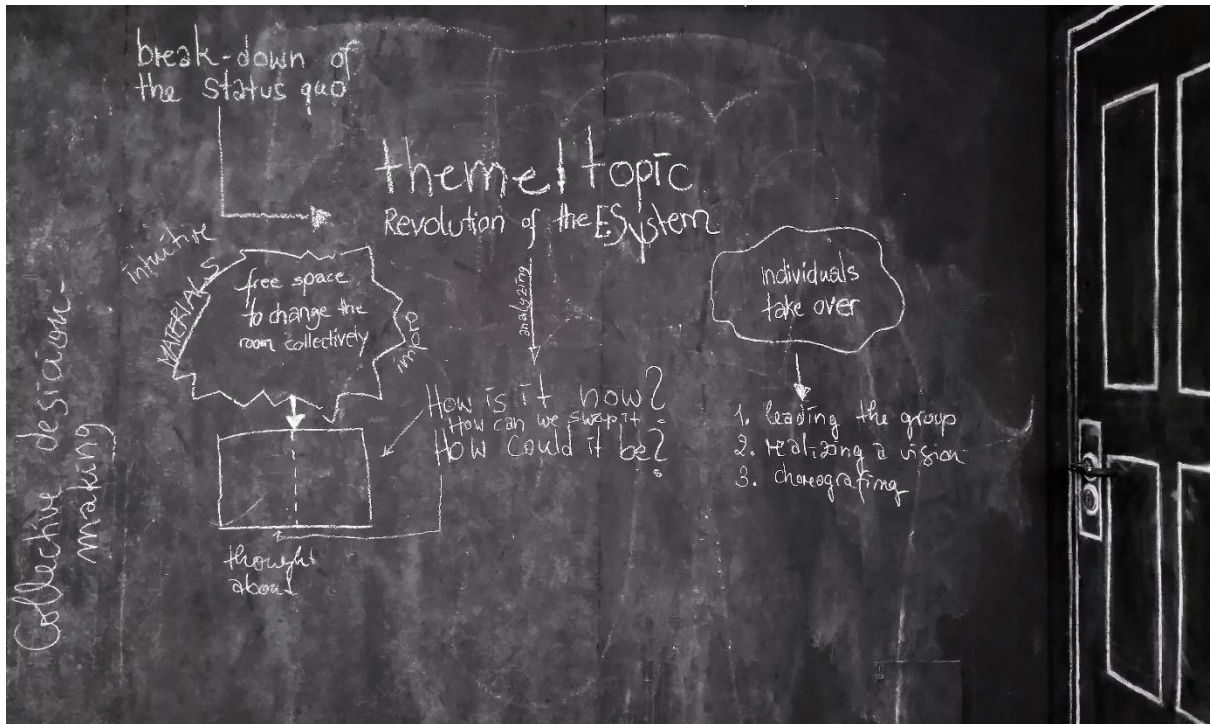 break-down of
the status quo
theme/topic
Revolution of the E.System
intuitive
MATERIALS
free space
to change the
room collectively
impro
analyzing
individuals
take over
How is it now?
How can we swap it?
How could it be?
1. leading the group
2. realizing a vision
3. choreografing
thought
about
Collective desision-
making